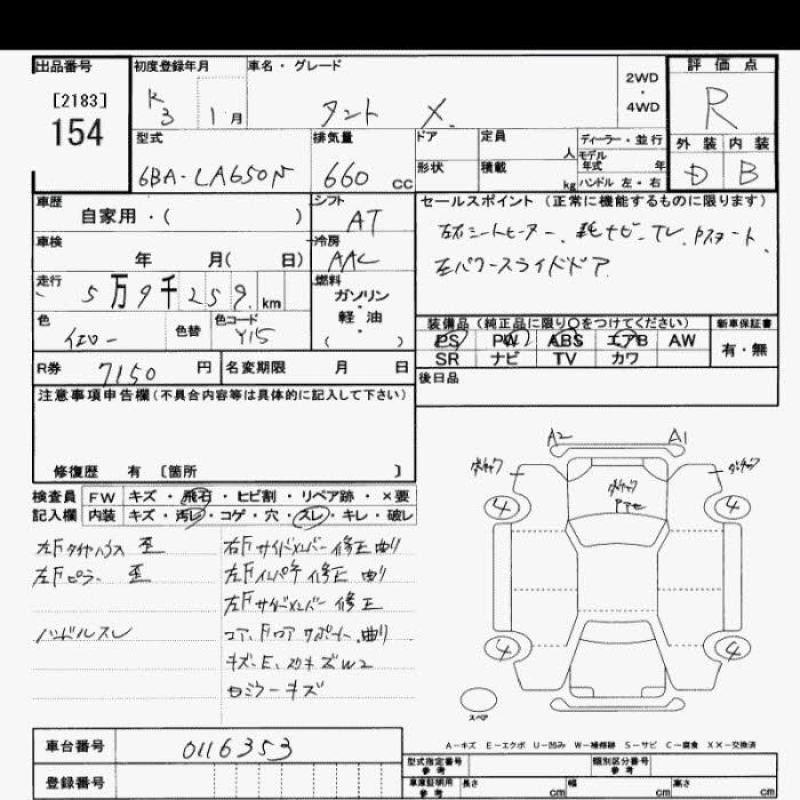 出品番号
[2183]
154
初度登録年月
R3 1月
車名・グレード
タント X
2WD
・
4WD
評価点
R
外装 内装
D B
型式
6BA-LA650N
排気量
660 cc
ドア
形状
定員
人
積載
kg
ディーラー・並行
モデル年式 年
ハンドル 左・右
車歴
自家用・( )
シフト
AT
車検
年 月( 日)
冷房
AAC
走行
5万9千259 km
燃料
ガソリン
・
軽油
( )
色
イエロー
色替
色コード
Y15
R券
7150 円
名変期限 月 日
セールスポイント (正常に機能するものに限ります)
左右シートヒーター、純ナビ、TV、Pスタート、
左パワースライドドア
装備品 (純正品に限り○をつけてください)
新車保証書
PS PW ABS エアB AW
SR ナビ TV カワ
有・無
後日品
注意事項申告欄(不具合内容等は具体的に記入して下さい)
修復歴 有 〔箇所 〕
検査員
記入欄
FW キズ・飛石・ヒビ割・リペア跡・×要
内装 キズ・汚レ・コゲ・穴・スレ・キレ・破レ
左Fタイヤハウス 歪
左Fピラー 歪
ハンドルスレ
右Fサイドメンバー修正曲り
左Fインパネ修正 曲り
左Fサイドメンバー修正
コア、Fロアサポート曲り
キズ・E、スリキズW2
ミラーキズ
A2 A1
4 4
4 4
スペア
A-キズ E-エクボ U-凹み W-補修跡 S-サビ C-腐食 XX-交換済
車台番号
0116353
登録番号
型式指定番号
参考
類別区分番号
参考
車庫証明用
参考
長さ cm 幅 cm 高さ cm